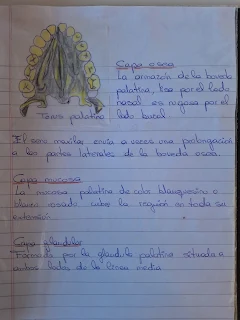 Capa osea
La armazón de la boveda
palatina, lisa por el lado
nasal es rugosa por el
lado bucal
Torus palatino
El seno maxilar envia a veces una prolongación
a las partes laterales de la boveda osea.
Capa mucosa
La mucosa palatina de color blanquesino o
blanco rosado cubre la region en toda su
extensión
Capa glandular
Formada por la glandula palatina situada a
ambos lados de la linea media